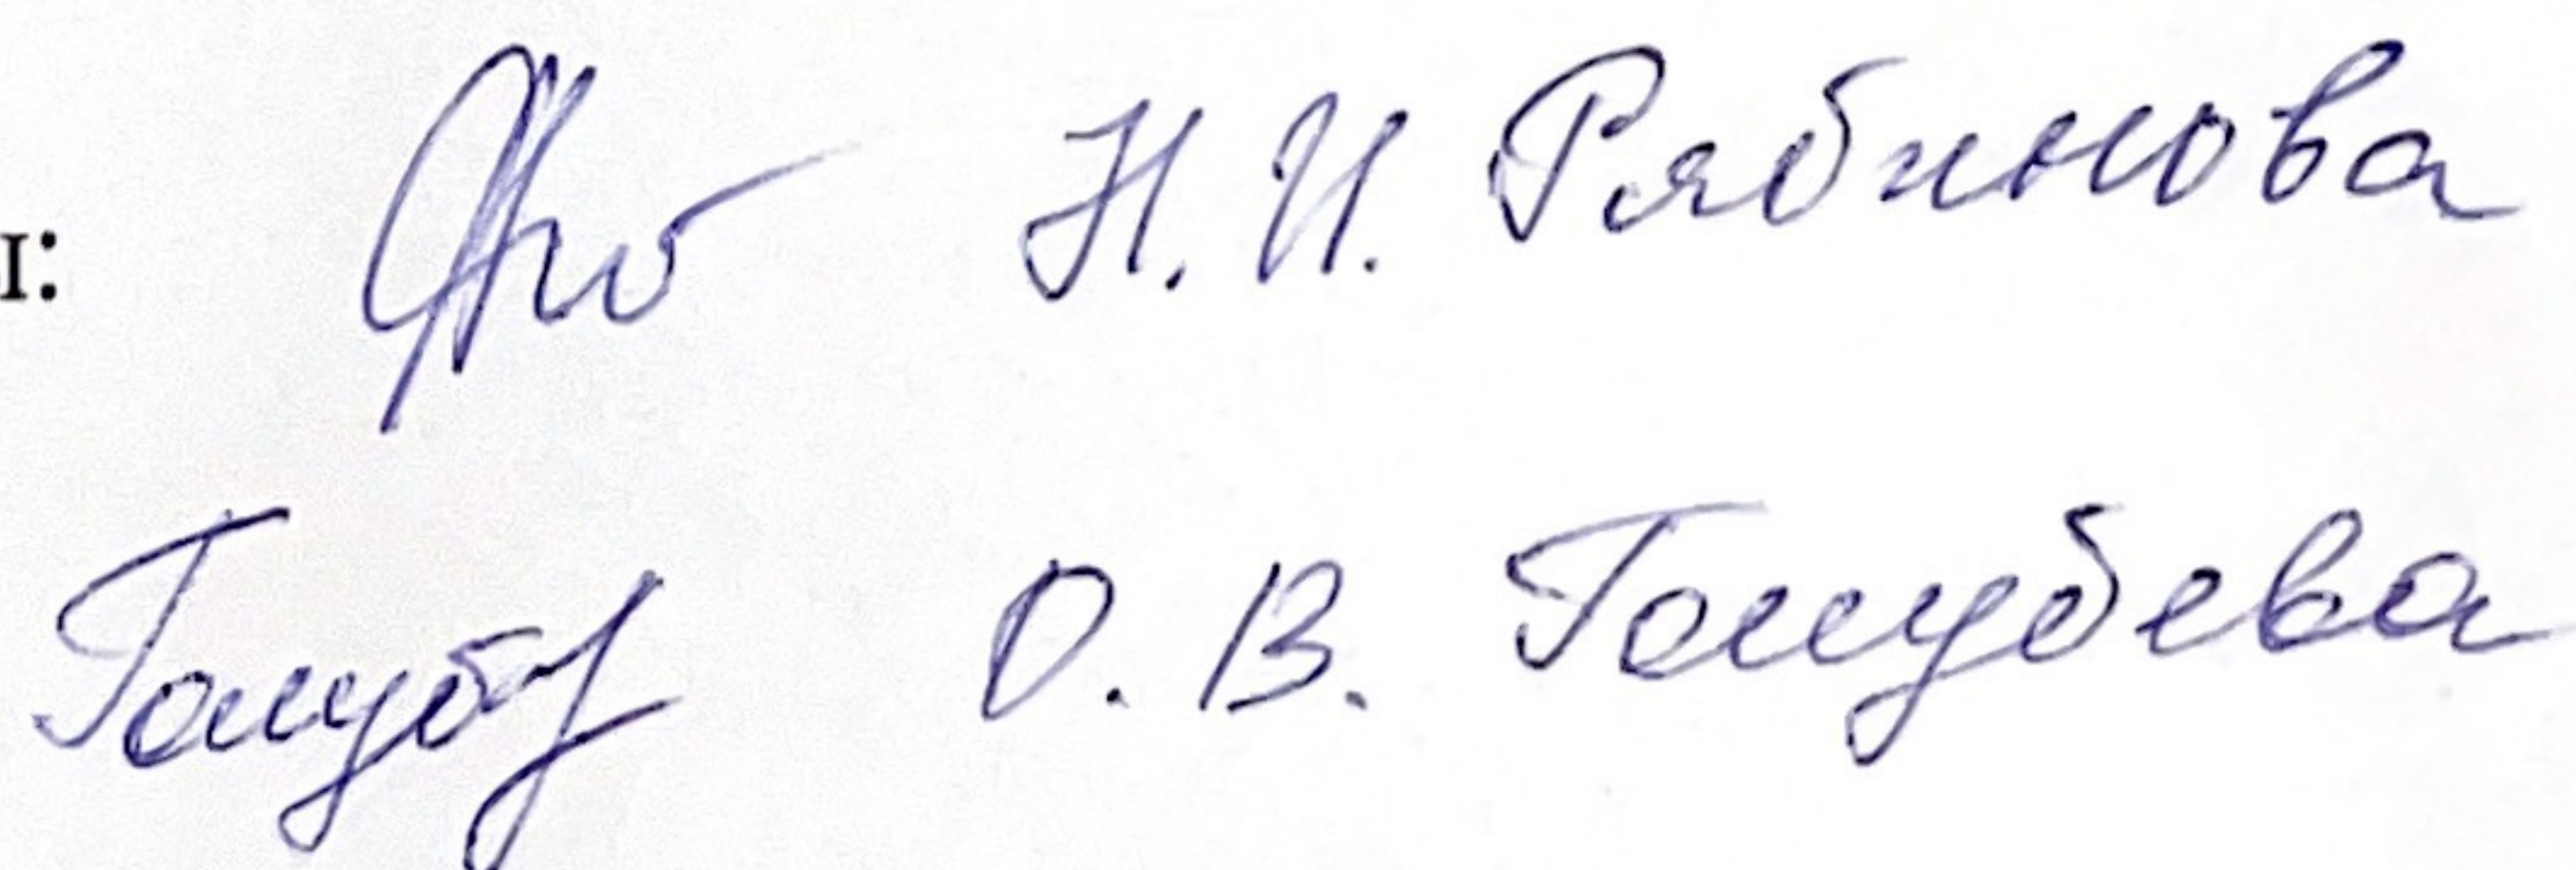 ы: Н. И. Рябинова
Голуб О. В. Голубева